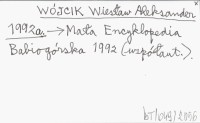 WÓJCIK Wiesław Aleksander
1992a, → Mała Encyklopedia
Babiogórska 1992 (współaut.).